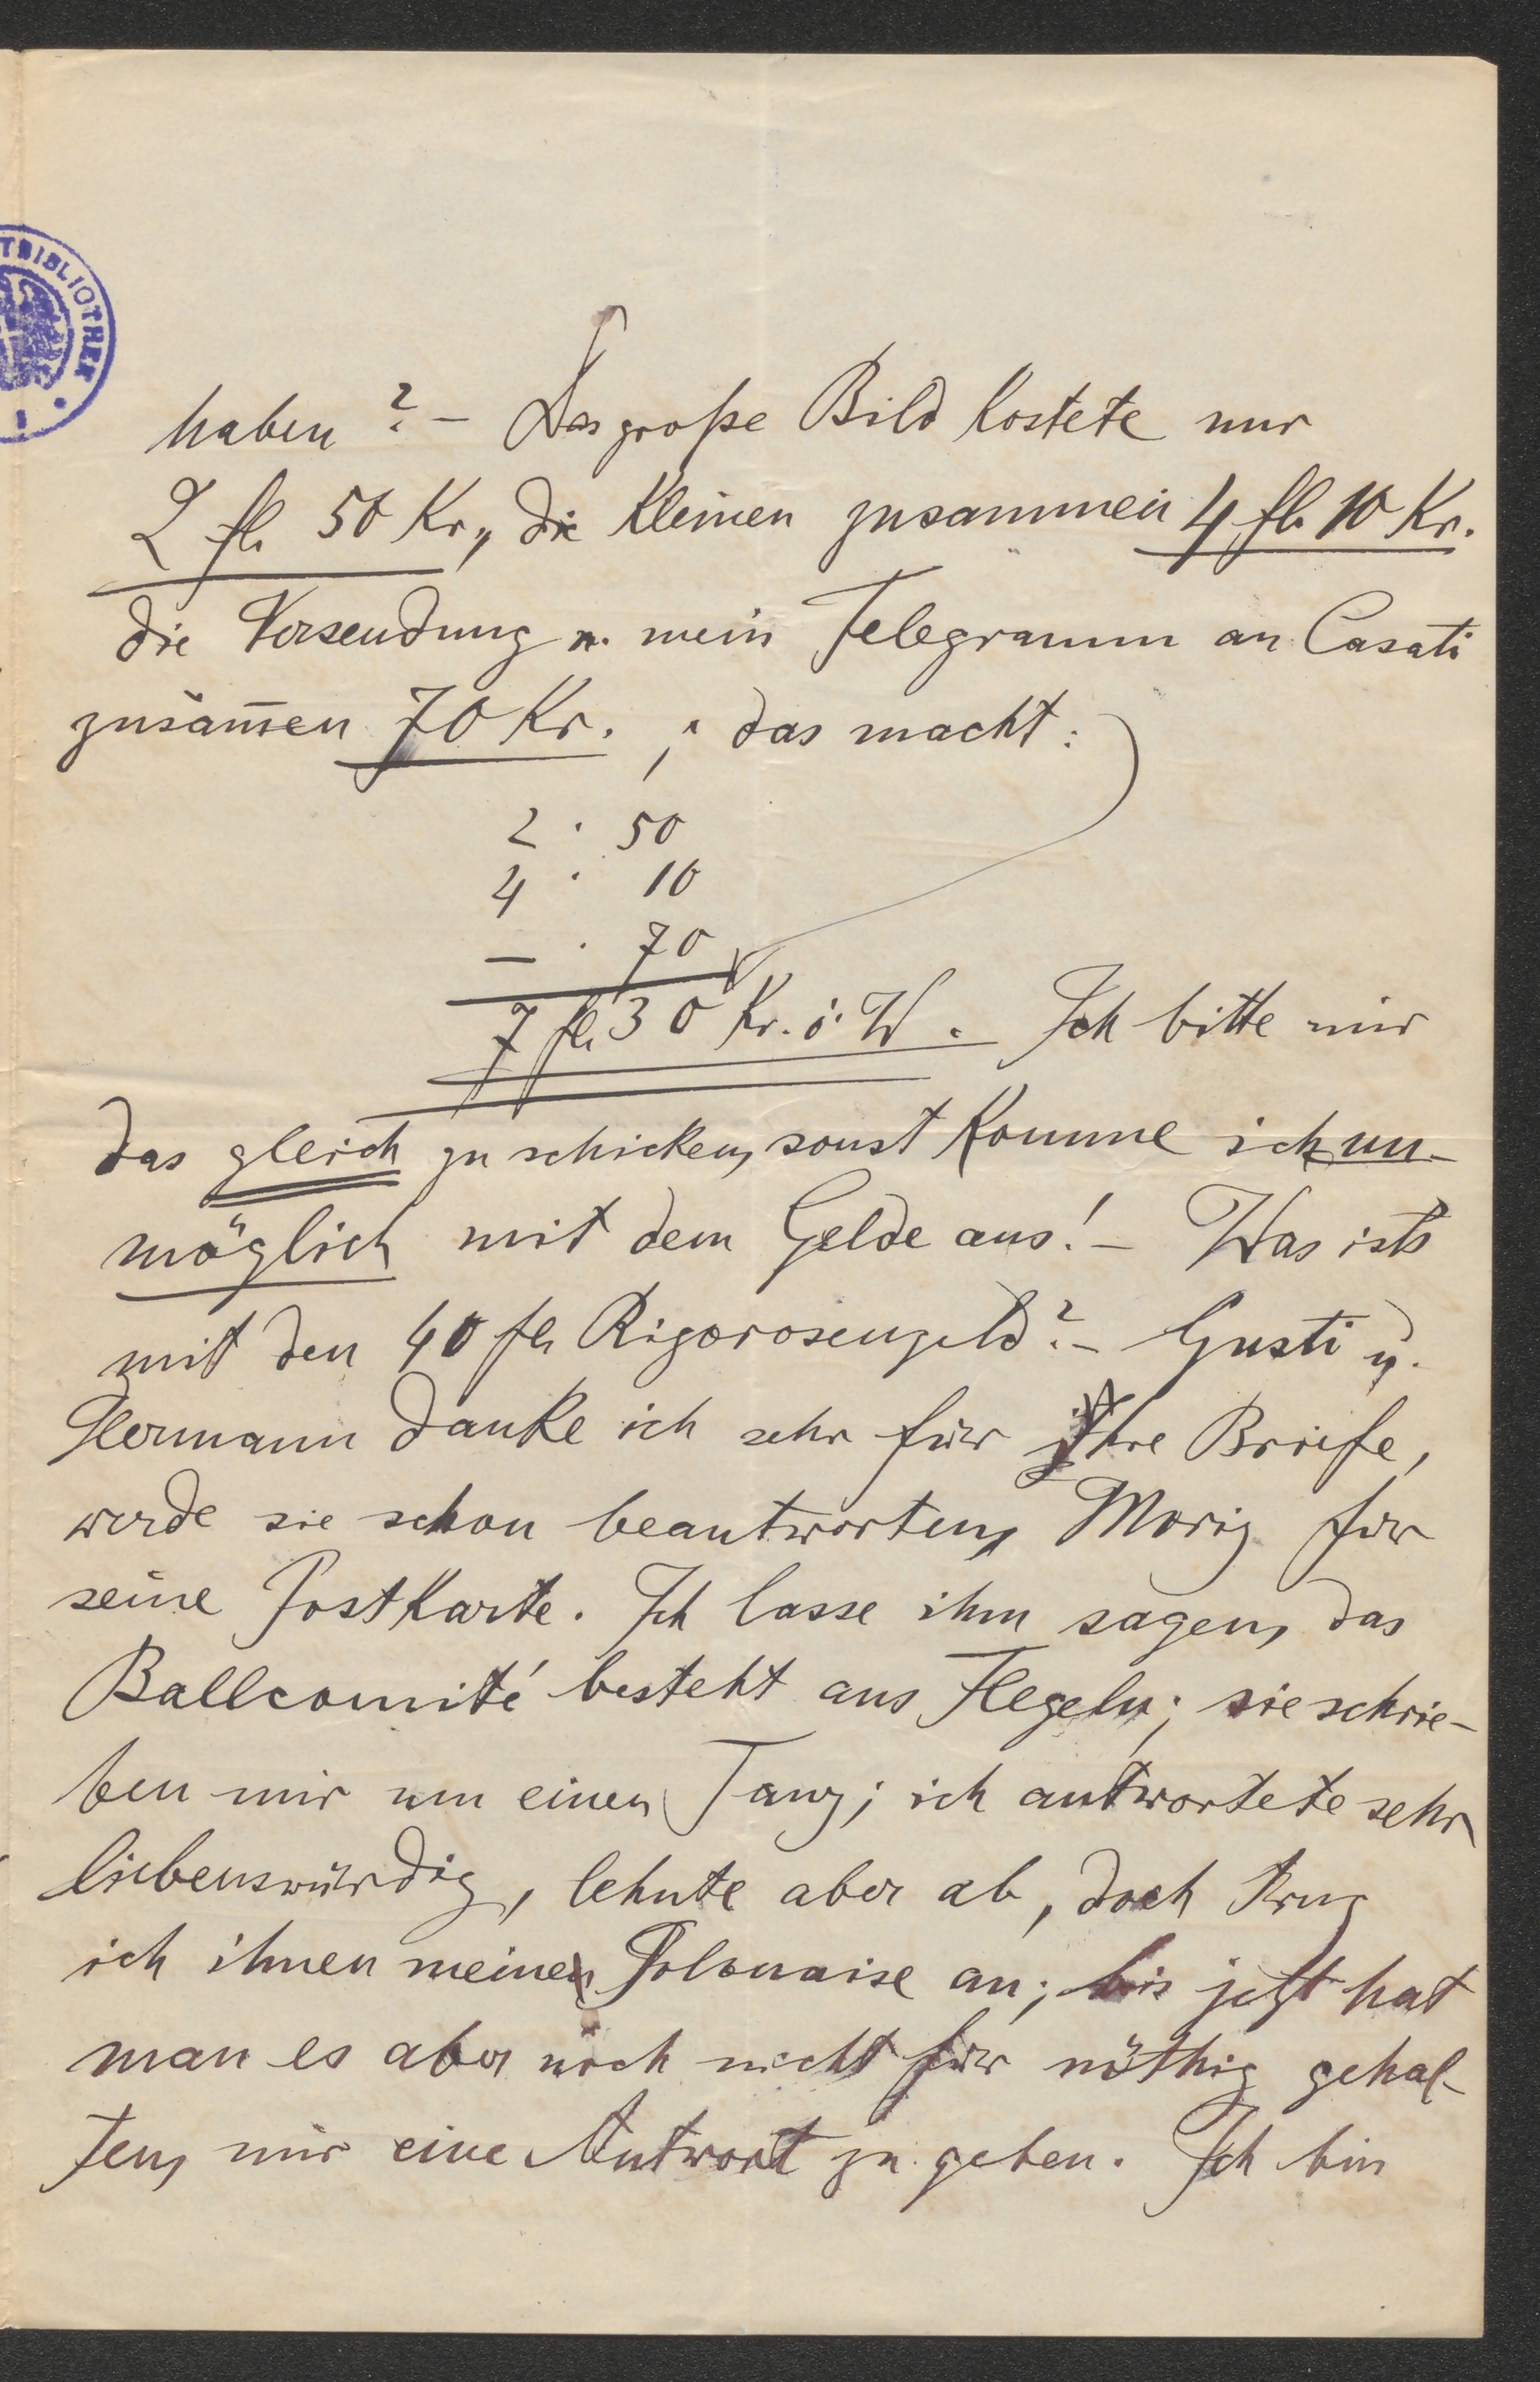 TBIBLIOTHEK
haben? – Das große Bild kostete nur
2 fl 50 Kr., die kleinen zusammen 4 fl. 10 Kr.
die Versendung u. mein Telegramm an Casati
zusam̅en 70 Kr.; das macht:
2 · 50
4 · 10
– · 70
7 fl. 30 Kr. ö. W. Ich bitte mir
das gleich zu schicken, sonst komme ich un-
möglich mit dem Gelde aus! – Was ists
mit den 40 fl. Rigorosengeld? – Gusti u.
Hermann danke ich sehr für ihre Briefe,
werde sie schon beantworten, Moriz für
seine Postkarte. Ich lasse ihm sagen, das
Ballcomité besteht aus Flegeln; sie schrie-
ben mir um einen Tanz; ich antwortete sehr
liebenswürdig, lehnte aber ab, doch trug
ich ihnen meine Polonaise an; bis jetzt hat
man es aber noch nicht für nöthig gehal-
ten, mir eine Antwort zu geben. Ich bin